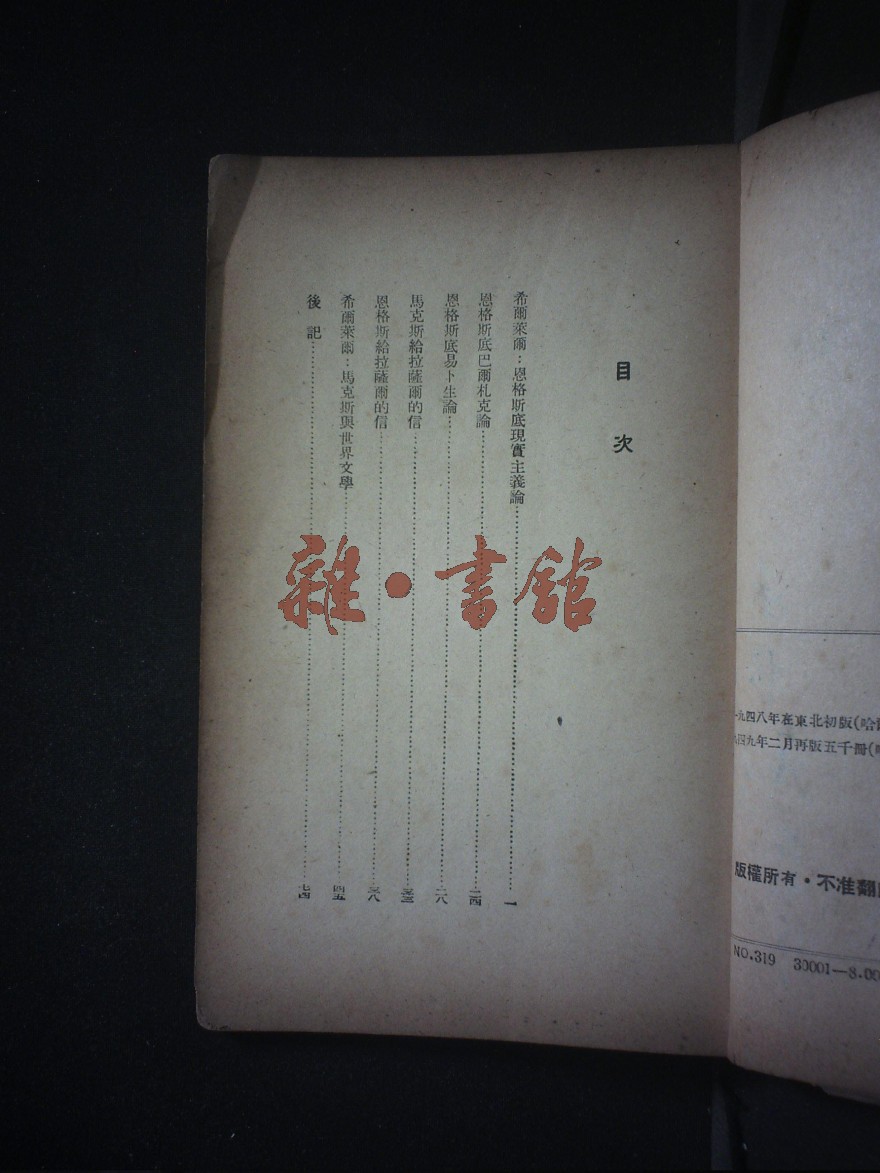 目次
希爾萊爾：恩格斯底現實主義論……一
恩格斯底巴爾札克論……二四
恩格斯底易卜生論……二八
馬克斯給拉薩爾的信……三三
恩格斯給拉薩爾的信……三八
希爾萊爾：馬克斯與世界文學……四五
後記……七四
雜·書館
一九四八年在東北初版(哈
四九年二月再版五千冊(
版權所有·不准翻
NO.319 30001—8.00